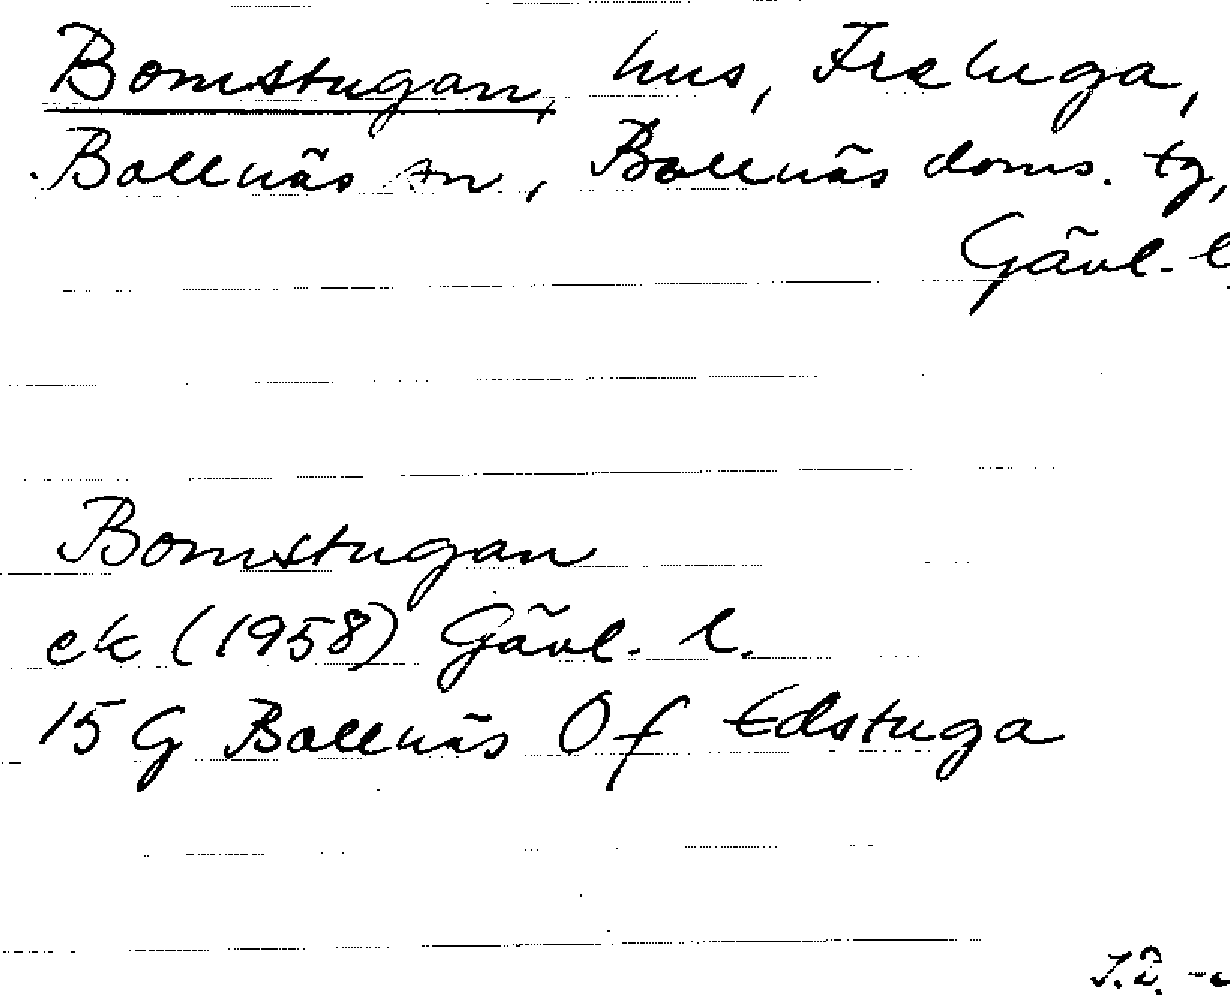 Bomstugan, hus, Freluga,
Bollnäs sn, Bollnäs doms. tg,
Gävl. l
Bomstugan
ek (1958) Gävl. l.
15 G Bollnäs Of Edstuga